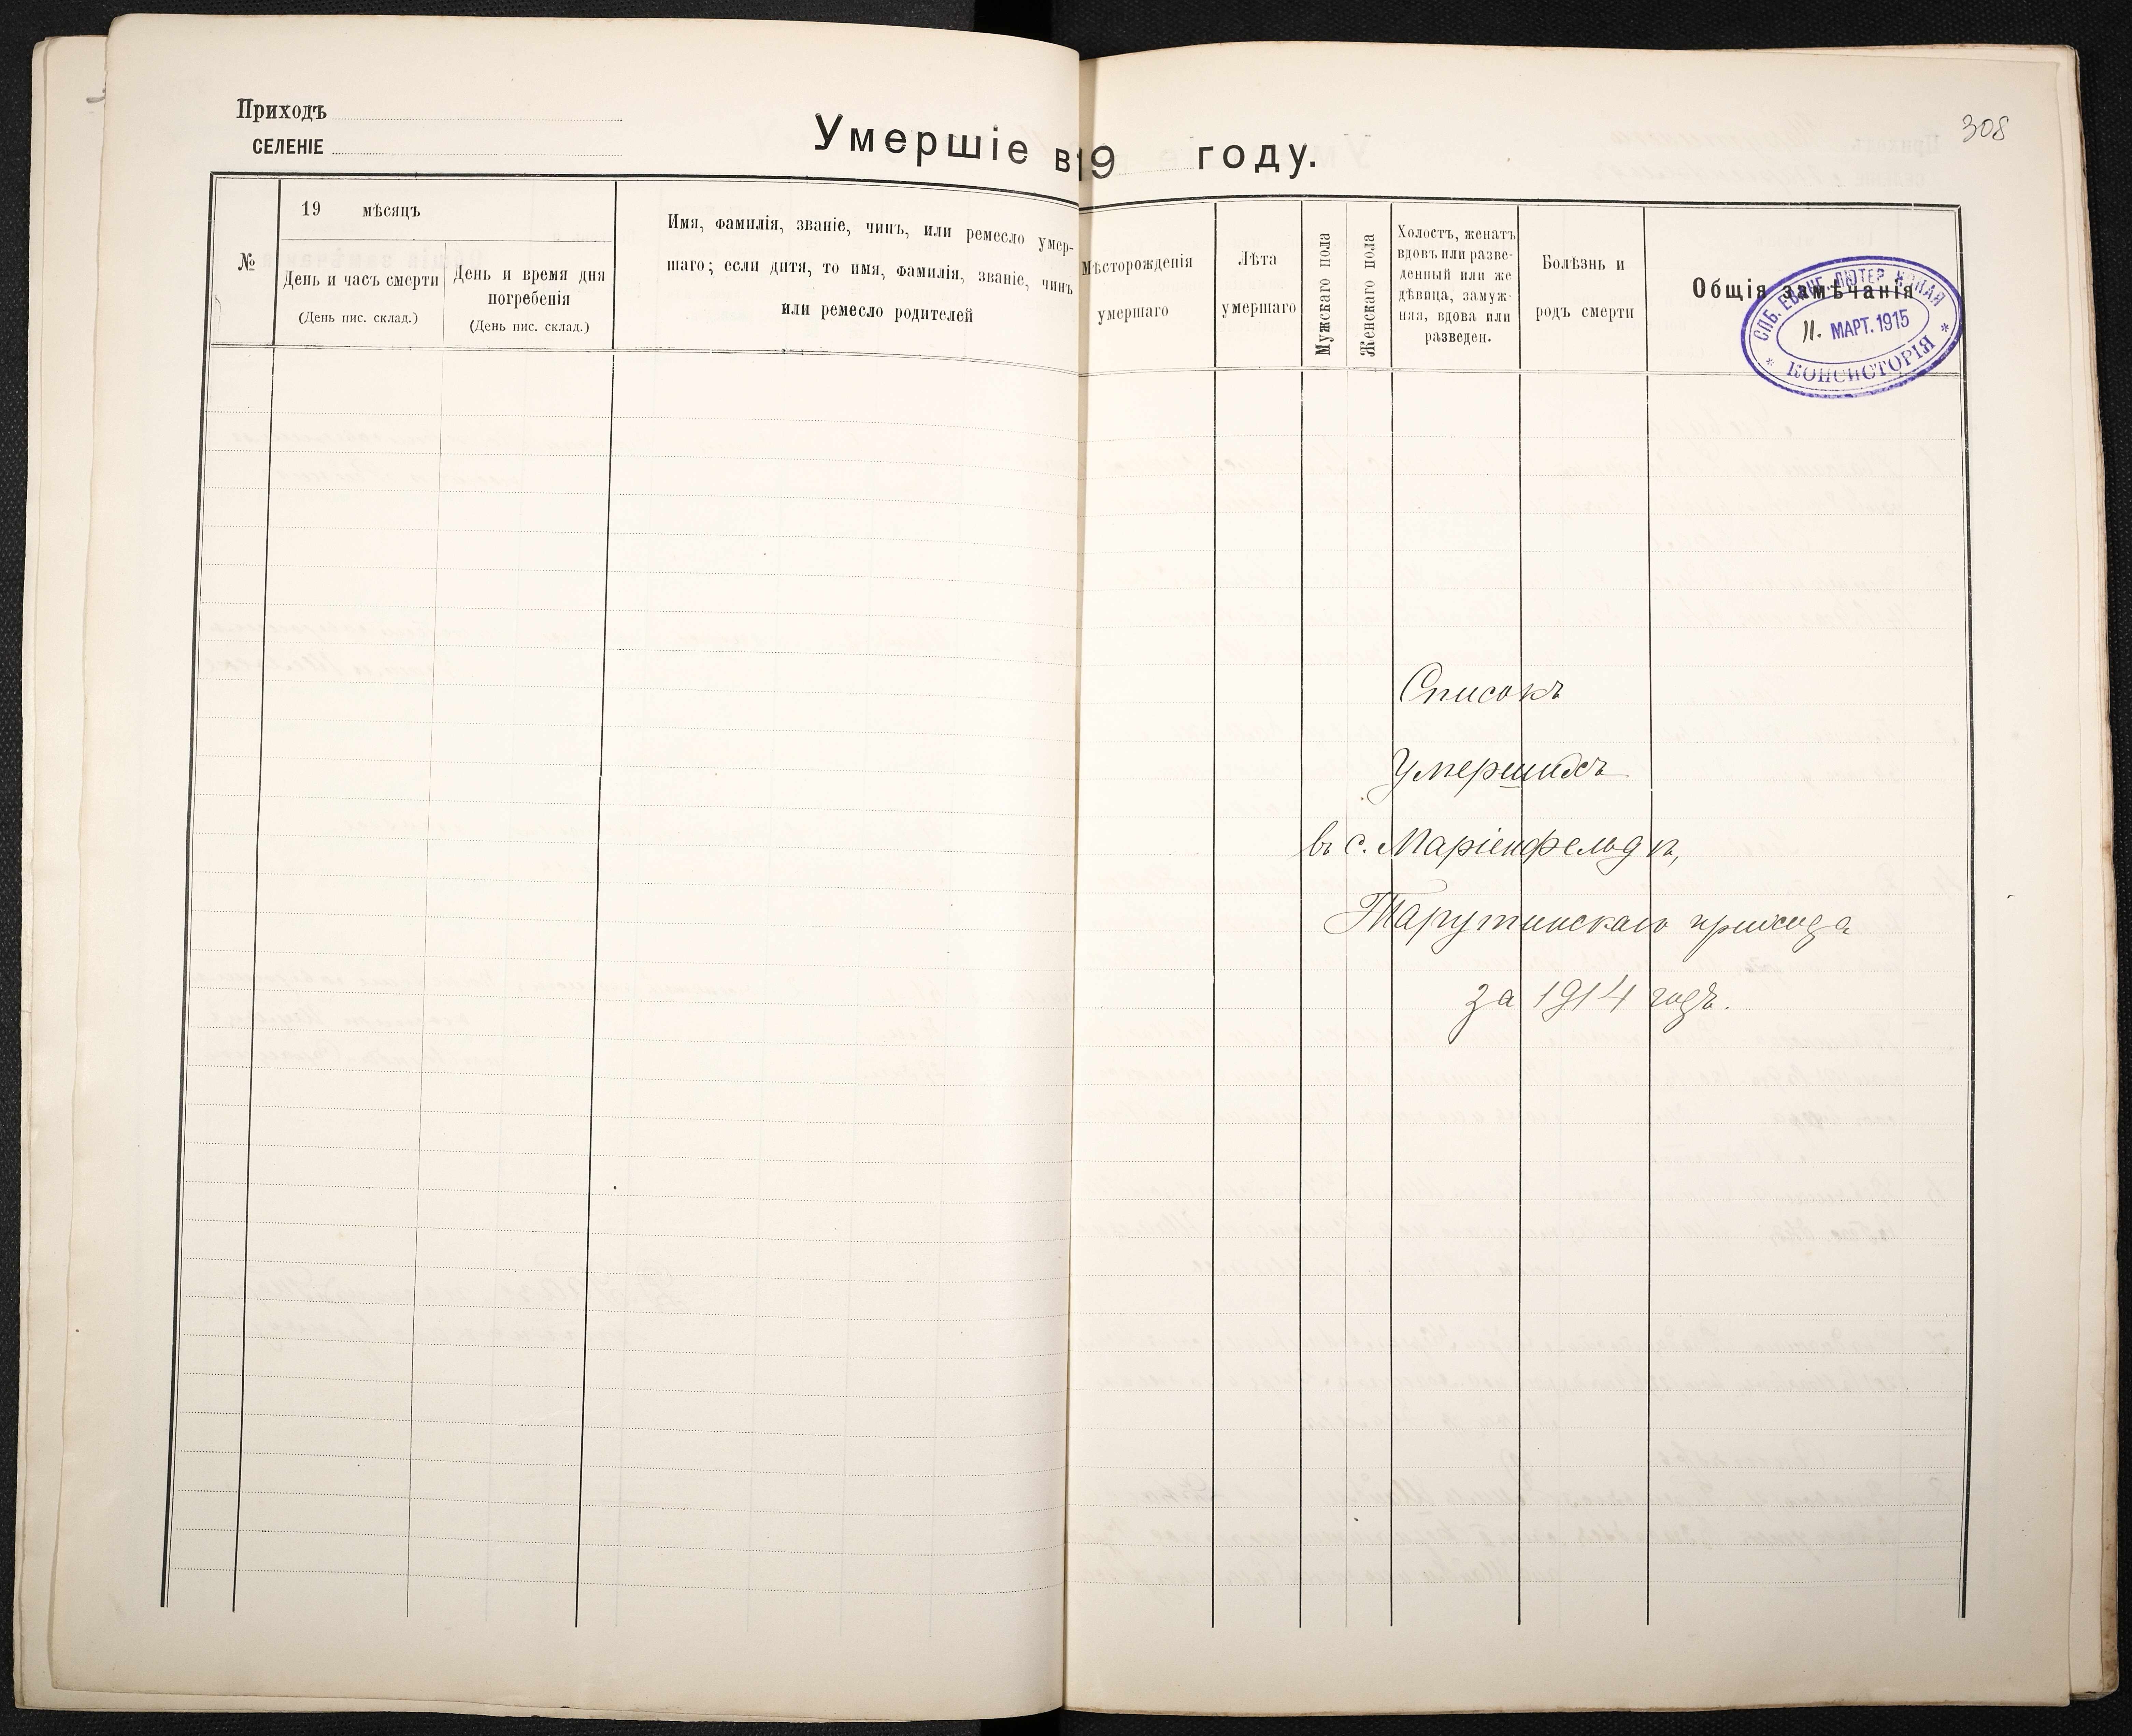 Приходъ
СЕЛЕНІЕ
Умершіе в 19 году.
308
№
19 мѣсяцъ
День и часъ смерти
(День пис. склад.)
День и время дня
погребенія
(День пис. склад.)
Имя, фамилія, званіе, чинъ, или ремесло умер-
шаго; если дитя, то имя, фамилія, званіе, чинъ
или ремесло родителей
Мѣсторожденія
умершаго
Лѣта
умершаго
Мужскаго пола
Женскаго пола
Холостъ, женатъ
вдовъ или разве-
денный или же
дѣвица, замуж-
няя, вдова или
разведен.
Болѣзнь и
родъ смерти
Общія замѣчанія
СПБ. ЕВАНГ. ЛЮТЕР
11. МАРТ. 1915
* КОНСИСТОРІЯ *
Списокъ
Умершихъ
въ с. Маріенфельдѣ,
Тарутинскаго прихода
за 1914 годъ.